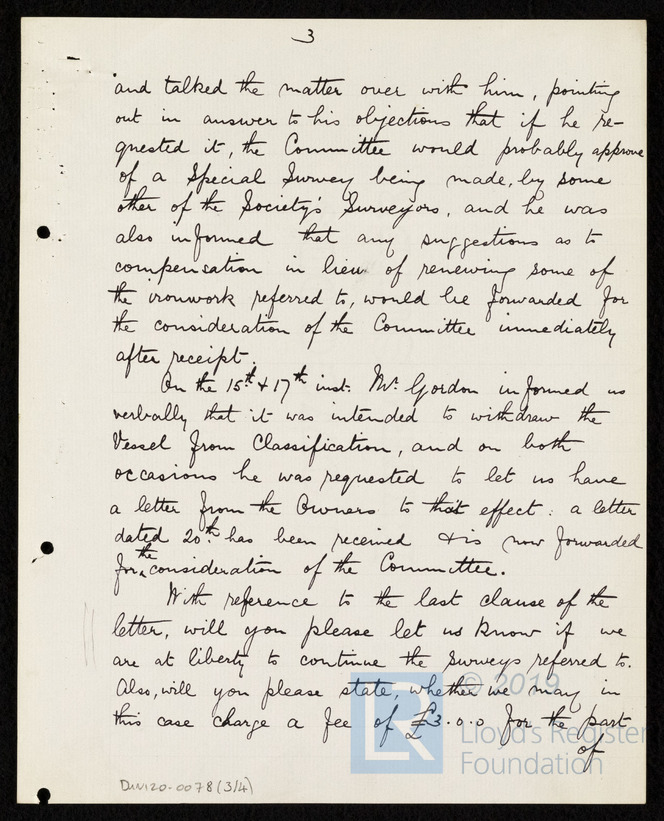 3
and talked the matter over with him, pointing
out in answer to his objections that if he re-
quested it, the Committee would probably approve
of a Special Survey being made, by some
other of the Society's Surveyors, and he was
also informed that any suggestions as to
compensation in lieu of renewing some of
the ironwork referred to, would be forwarded for
the consideration of the Committee immediately
after receipt.
On the 15th & 17th inst. Mr. Gordon informed us
verbally that it was intended to withdraw the
Vessel from Classification, and on both
occasions he was requested to let us have
a letter from the Owners to that effect: a letter
dated 20th has been received & is now forwarded
for the consideration of the Committee.
With reference to the last clause of the
letter, will you please let us know if we
are at liberty to continue the Surveys referred to.
Also, will you please state, whether we may in
this case charge a fee of £3.0.0 for the part
of
DW120-0078 (3/4)
© 2019
Lloyd's Register
Foundation
LR